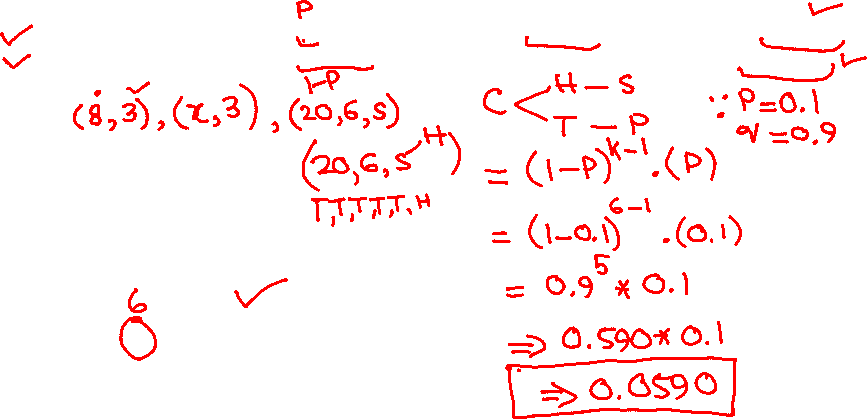 P
1-P
(8,3), (x,3), (20,6,S)
(20,6,S H)
T,T,T,T,T,H
6
C H - S
T - P
∵ P=0.1
q=0.9
= (1-P)^{k-1} .(P)
= (1-0.1)^{6-1} .(0.1)
= 0.9^5 * 0.1
⇒ 0.590* 0.1
⇒ 0.0590